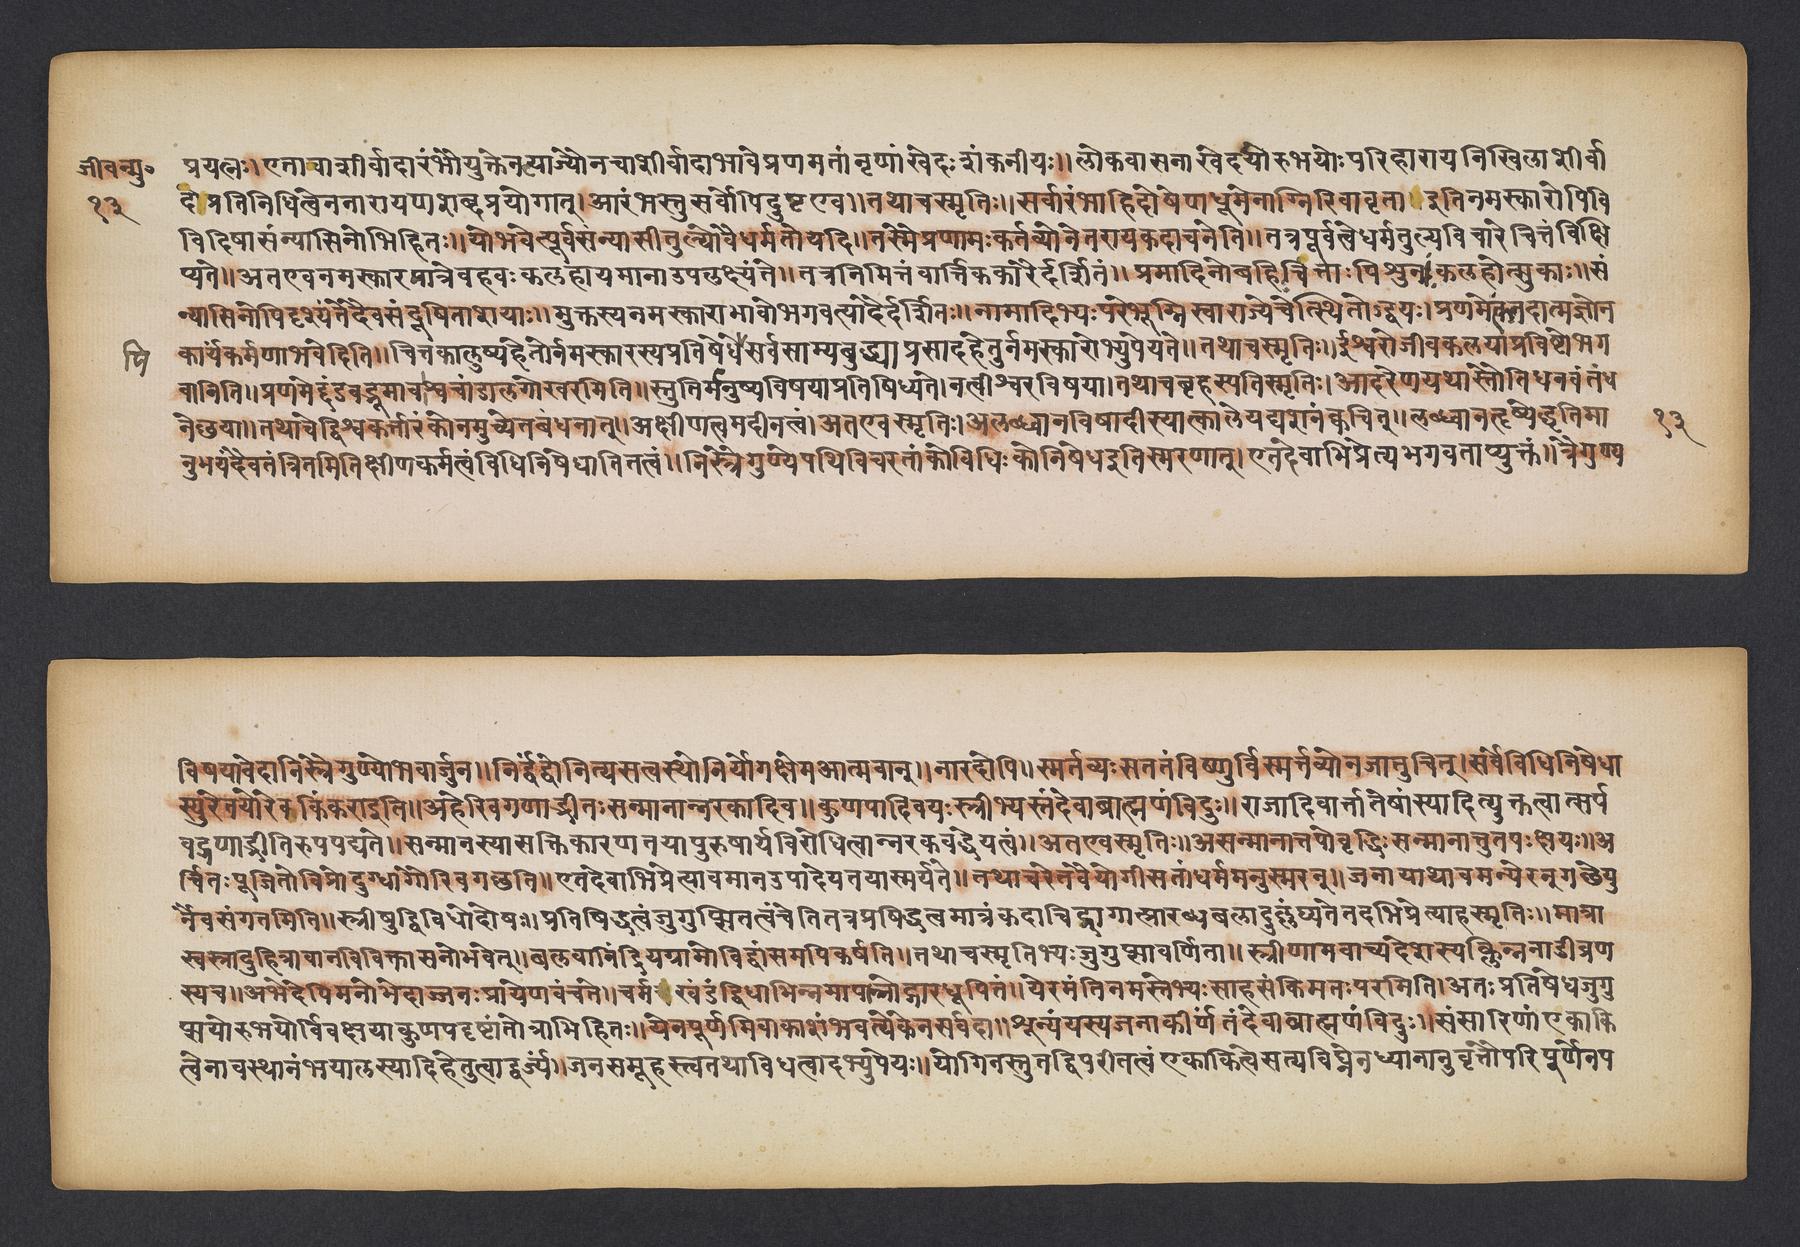 जीवन्मु॰
१३
प्रयत्नः। एतावाशीर्वादारंभौयुक्तेनत्याज्यौनचाशीर्वादाभावेप्रणमतांनृणांखेदःशंकनीयः॥लोकवासनाखेदयोरुभयोःपरिहारायनिखिलाशीर्वा
दप्रतिनिधित्वेननारायणशब्दप्रयोगात्।आरंभस्तुसर्वोपिदुष्टएव॥तथाचस्मृतिः॥सर्वारंभाहिदोषेणधूमेनाग्निरिवावृता इतिनमस्कारोपिवि
विदिषासंन्यासिनोभिहितः॥योभवेत्पूर्वसंन्यासीतुल्योवैधर्मतोयदि॥तस्मैप्रणामःकर्तव्योनेतरायकदाचनेति॥तत्रपूर्वत्वेधर्मतुल्यविचारेचित्तंविक्षि
प्यते॥अतएवनमस्कारमात्रेबहवःकलहायमानाउपलक्ष्यंते॥तत्रनिमित्तंवार्त्तिककारैर्दर्शितं॥प्रमादिनोबहिश्चित्ताःपिशुनाःकलहोत्सुकाः॥सं
न्यासिनोपिदृश्यंतेदैवसंदूषिताशयाः॥मुक्तस्यनमस्काराभावोभगवत्पादैर्दर्शितः॥नामादिभ्यःपरेभूम्निस्वाराज्येचेत्स्थितोऽद्वयः।प्रणमेत्कंतदात्मज्ञोन
कार्यंकर्मणाभवेदिति॥चित्तकालुष्यहेतोर्नमस्कारस्यप्रतिषेधेसर्वसाम्यबुद्ध्याप्रसादहेतुर्नमस्कारोभ्युपेयते॥तथाचस्मृतिः॥ईश्वरोजीवकलयाप्रविष्टोभग
वानिति॥प्रणमेद्दंडवद्भूमावाश्वचांडालगोखरमिति॥स्तुतिर्मनुष्यविषयाप्रतिषिध्यते।नत्वीश्वरविषया।तथाचबृहस्पतिस्मृतिः।आदरेणयथास्तौतिधनवंतंध
नेछया॥तथाचेद्विश्वकर्त्तारंकोनमुच्येतबंधनात्॥अक्षीणत्वमदीनत्वं।अतएवस्मृतिः।अलब्ध्वानविषादीस्यात्कालेयद्यशनंक्वचित्॥लब्ध्वानहृष्येद्धृतिमा
१३
नुभयंदैवतंत्रितमितिक्षीणकर्मत्वंविधिनिषेधातितत्वं॥निस्त्रैगुण्येपथिविचरतांकोविधिःकोनिषेधइतिस्मरणात्।एतदेवाभिप्रेत्यभगवताप्युक्तं॥त्रैगुण्य
विषयावेदानिस्त्रैगुण्योभवार्जुन॥निर्द्वंद्वोनित्यसत्वस्थोनिर्योगक्षेमआत्मवान्॥नारदोपि॥स्मर्तव्यःसततंविष्णुर्विस्मर्त्तव्योनजातुचित्।सर्वेविधिनिषेधा
स्युरेतयोरेवकिंकराइति॥अहेरिवगणाद्भीतःसन्मानान्नरकादिव॥कुणपादिवयःस्त्रीभ्यस्तंदेवाब्राह्मणंविदुः॥राजादिवार्त्तातेषांस्यादित्युक्तत्वात्सर्प
वद्गणाद्भीतिरुपपद्यते॥सन्मानस्यासक्तिकारणतयापुरुषार्थविरोधित्वान्नरकवद्धेयत्वं॥अतएवस्मृतिः॥असन्मानात्तपोवृद्धिःसन्मानात्तुतपःक्षयः॥अ
र्चितःपूजितोविप्रोदुग्धागौरिवगछति॥एतदेवाभिप्रेत्यावमानउपादेयतयास्मर्यते॥तथाचरेतवैयोगीसतांधर्ममनुस्मरन्॥जनायथावमन्येरन्गछेयु
र्नैवसंगतमिति॥स्त्रीषुद्विविधोदोषः॥प्रतिषिद्धत्वंजुगुप्सितत्वंचेतितत्रप्रषिद्धत्वमात्रंकदाचिद्रागात्प्रारब्धबलादुल्लंघ्यतेतदभिप्रेत्याहस्मृतिः॥मात्रा
स्वस्त्रादुहित्रावानविविक्तासनोभवेत्॥बलवानिंद्रियग्रामोविद्वांसमपिकर्षति॥तथाचस्मृतिभ्यःजुगुप्सावर्णिता॥स्त्रीणामवाच्यदेशस्यक्लिन्ननाडीव्रण
स्यच॥अभेदेपिमनोभेदाज्जनःप्रायेणवंचते॥चर्मखंडंद्विधाभिन्नमापानोद्गारधूपितं॥येरमंतिनमस्तेभ्यःसाहसंकिमतःपरमिति।अतःप्रतिषेधजुगु
प्सयोरुभयोर्विवक्षयाकुणपदृष्टांतोत्राभिहितः॥येनपूर्णमिवाकाशंभवत्येकेनसर्वदा॥शून्यंयस्यजनाकीर्णंतंदेवाब्राह्मणंविदुः॥संसारिणांएकाकि
त्वेनावस्थानंभयालस्यादिहेतुत्वाद्वर्ज्यं।जनसमूहस्त्वतथाविधत्वादभ्युपेयः॥योगिनस्तुतद्विपरीतत्वंएकाकित्वेसत्यविघ्नेनध्यानानुवृत्तौपरिपूर्णेनप